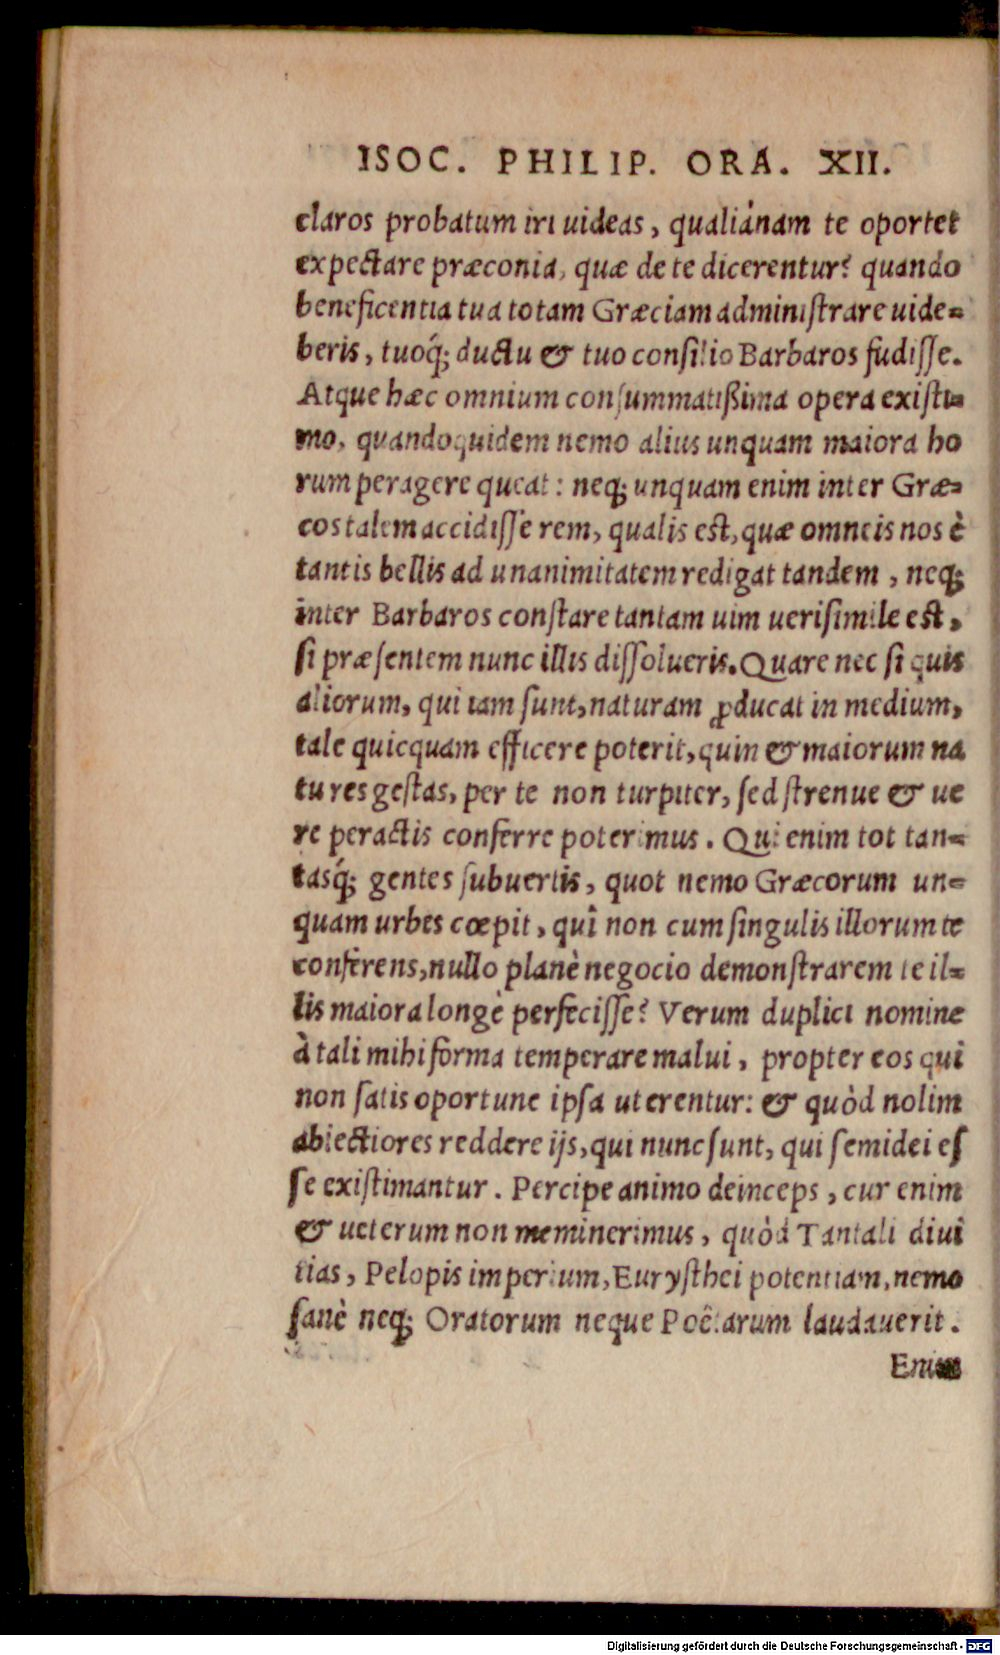 ISOC. PHILIP. ORA. XII.
claros probatum iri uideas, qualiánam te oportet
expectare præconia, quæ de te dicerentur? quando
beneficentia tua totam Græciam administrare uide=
beris, tuoq́; ductu & tuo consilio Barbaros fudisse.
Atque hæc omnium consummatißima opera existi=
mo, quandoquidem nemo alius unquam maiora ho
rum peragere queat: neq; unquam enim inter Græ=
cos talem accidisse rem, qualis est, quæ omneis nos è
tantis bellis ad unanimitatem redigat tandem, neq;
inter Barbaros constare tantam uim uerisimile est,
si præsentem nunc illis dissolueris. Quare nec si quis
aliorum, qui iam sunt, naturam ꝓducat in medium,
tale quicquam efficere poterit, quin & maiorum na
tu res gestas, per te non turpiter, sed strenue & ue
re peractis conferre poterimus. Qui enim tot tan=
tasq́; gentes subuertis, quot nemo Græcorum un=
quam urbes cœpit, quî non cum singulis illorum te
conferens, nullo planè negocio demonstrarem te il=
lis maiora longè perfecisse? Verum duplici nomine
à tali mihi forma temperare malui, propter eos qui
non satis oportune ipsa uterentur: & quòd nolim
abiectiores reddere ijs, qui nunc sunt, qui semidei es
se existimantur. Percipe animo deinceps, cur enim
& ueterum non meminerimus, quòd Tantali diui
tias, Pelopis imperium, Eurysthei potentiam, nemo
sanè neq; Oratorum neque Poêtarum laudauerit.
Enim
Digitalisierung gefördert durch die Deutsche Forschungsgemeinschaft - DFG